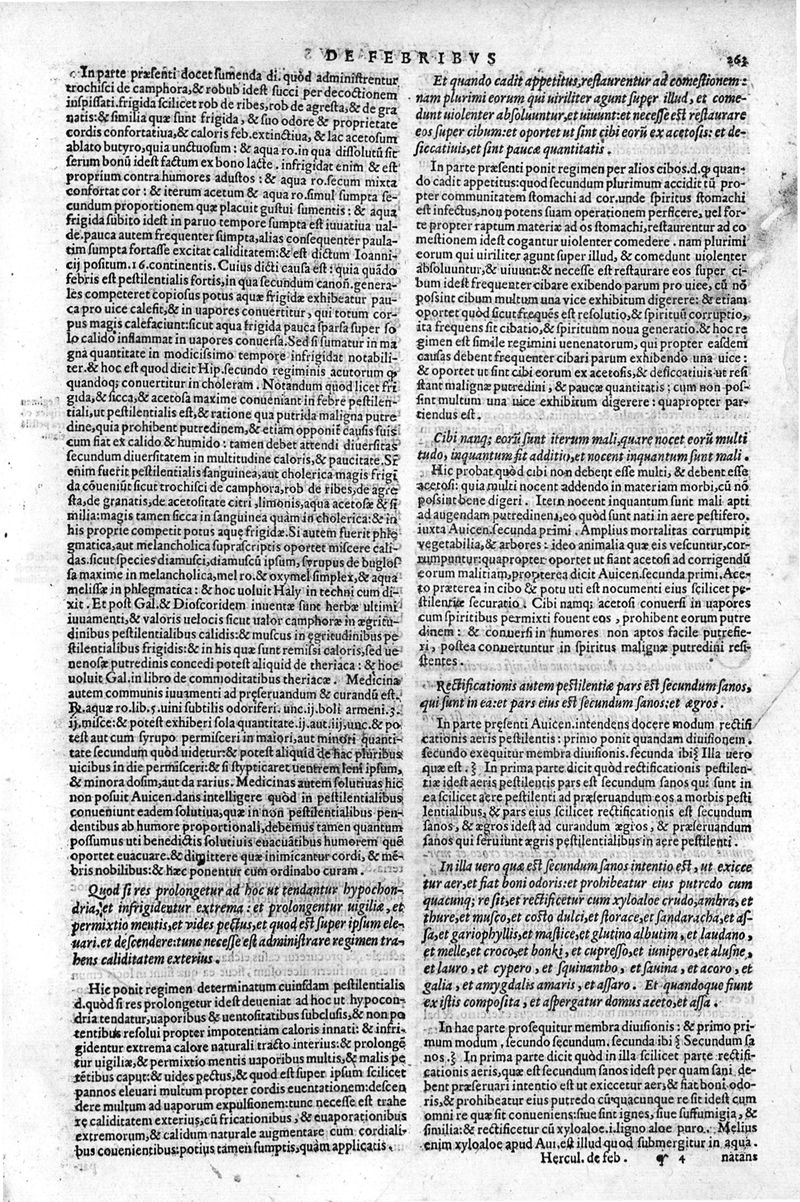 DE FEBRIBVS
263
In parte præsenti docet sumenda di. quòd administrentur
trochisci de camphora, & robub idest succi per decoctionem
inspissati. frigida scilicet rob de ribes, rob de agresta, & de gra
natis: & similia quæ sunt frigida, & suo odore & proprietate
cordis confortatiua, & caloris feb. extinctiua, & lac acetosum
ablato butyro, quia unctuosum: & aqua ro. in qua dissolutū sit
serum bonū idest factum ex bono lacte. infrigidat enim & est
proprium contra humores adustos: & aqua ro. secum mixta
confortat cor: & iterum acetum & aqua ro. simul sumpta se-
cundum proportionem quæ placuit gustui sumentis: & aqua
frigida subito idest in paruo tempore sumpta est iuuatiua ual-
de. pauca autem frequenter sumpta, alias consequenter paula-
tim sumpta fortasse excitat caliditatem: & est dictum Ioanni-
cij positum. 16. continentis. Cuius dicti causa est: quia quādo
febris est pestilentialis fortis, in qua secundum canoñ. genera-
les competeret copiosus potus aquæ frigidæ exhibeatur pau-
ca pro uice calefit, & in uapores conuertitur, qui totum cor-
pus magis calefaciunt: sicut aqua frigida pauca sparsa super so
lo calido inflammat in uapores conuersa. Sed si sumatur in ma
gna quantitate in modicissimo tempore infrigidat notabili-
ter. & hoc est quod dicit Hip. secundo regiminis acutorum ꝙ
quandoq; conuertitur in choleram. Notandum quod licet fri
gida, & sicca, & acetosa maxime conueniant in febre pestilen-
tiali, ut pestilentialis est, & ratione qua putrida maligna putre
dine, quia prohibent putredinem, & etiam opponit̃ causis suis
cum fiat ex calido & humido: tamen debet attendi diuersitas
secundum diuersitatem in multitudine caloris, & paucitate. Si
enim fuerit pestilentialis sanguinea, aut cholerica magis frigi
da cōueniūt sicut trochisci de camphora, rob de ribes, de agre
sta, de granatis, de acetositate citri, limonis, aqua acetosæ & si
milia: magis tamen sicca in sanguinea quàm in cholerica: & in
his proprie competit potus aquę frigidæ. Si autem fuerit phle
gmatica, aut melancholica suprascriptis oportet miscere cali-
das. sicut species diamusci, diamuscū ipsum, syrupus de buglos
sa maxime in melancholica, mel ro. & oxymel simplex, & aqua
melissæ in phlegmatica: & hoc uoluit Haly in techni cum di-
xit. Et post Gal. & Dioscoridem inuentæ sunt herbæ ultimi
iuuamenti, & valoris uelocis sicut ualor camphoræ in ægritu-
dinibus pestilentialibus calidis: & muscus in ęgritudinibus pe
stilentialibus frigidis: & in his quæ sunt remissi caloris, sed ue
nenosæ putredinis concedi potest aliquid de theriaca: & hoc
uoluit Gal. in libro de commoditatibus theriacæ. Medicina
autem communis iuuamenti ad præseruandum & curandū est.
℞. aquæ ro. lib. ʒ. uini subtilis odoriferi. unc. ij. boli armeni. ʒ.
ij. misce: & potest exhiberi sola quantitate. ij. aut. iij. unc. & po
test aut cum syrupo permisceri in maiori, aut minori quanti-
tate secundum quòd uidetur: & potest aliquid de hac pluribus
uicibus in die permisceri: & si stypticaret uentrem leni ipsum,
& minora dosim, aut da rarius. Medicinas autem solutiuas hic
non posuit Auicen. dans intelligere quòd in pestilentialibus
conueniunt eadem solutiua, quæ in non pestilentialibus pen-
dentibus ab humore proportionali, debemus tamen quantum
possumus uti benedictis solutiuis euacuātibus humorem quē
oportet euacuare. & dimittere quæ inimicantur cordi, & mē-
bris nobilibus: & hæc ponentur cum ordinabo curam.
Quod si res prolongetur ad hoc ut tendantur hypochon-
dria, et infrigidentur extrema: et prolongentur uigiliæ, et
permixtio mentis, et vides pectus, et quod est super ipsum ele-
uari. et descendere: tunc necesse est administrare regimen tra-
hens caliditatem exterius.
Hic ponit regimen determinatum cuiusdam pestilentialis
d. quòd si res prolongetur idest deueniat ad hoc ut hypocon-
dria tendatur, uaporibus & uentositatibus subclusis, & non po
tentibus resolui propter impotentiam caloris innati: & infri-
gidentur extrema calore naturali tracto interius: & prolongē
tur uigiliæ, & permixtio mentis uaporibus multis, & malis pe
tētibus caput: & uides pectus, & quod est super ipsum scilicet
pannos eleuari multum propter cordis euentationem: descen
dere multum ad uaporum expulsionem: tunc necesse est trahe
rę caliditatem exterius, cū fricationibus, & euaporationibus
extremorum, & calidum naturale augmentare cum cordiali-
bus couenientibus: potius tamen sumptis, quàm applicatis.
Et quando cadit appetitus, restaurentur ad comestionem:
nam plurimi eorum qui uiriliter agunt super illud, et come-
dunt uiolenter absoluuntur, et uiuunt: et necesse est restaurare
eos super cibum: et oportet ut sint cibi eorū ex acetosis: et de-
siccatiuis, et sint paucæ quantitatis.
In parte præsenti ponit regimen per alios cibos. d. ꝙ quan-
do cadit appetitus: quod secundum plurimum accidit tū pro-
pter communitatem stomachi ad cor, unde spiritus stomachi
est infectus, non potens suam operationem perficere, uel for-
te propter raptum materiæ ad os stomachi, restaurentur ad co
mestionem idest cogantur uiolenter comedere. nam plurimi
eorum qui uiriliter agunt super illud, & comedunt uiolenter
absoluuntur, & uiuunt: & necesse est restaurare eos super ci-
bum idest frequenter cibare exibendo parum pro uice, cū nō
possint cibum multum una vice exhibitum digerere: & etiam
oportet quòd sicut frequēs est resolutio, & spirituū corruptio,
ita frequens sit cibatio, & spirituum noua generatio. & hoc re
gimen est simile regimini uenenatorum, qui propter easdem
causas debent frequenter cibari parum exhibendo una uice:
& oportet ut sint cibi eorum ex acetosis, & desiccatiuis ut resi
stant malignæ putredini, & paucæ quantitatis; cum non pos-
sint multum una uice exhibitum digerere: quapropter par-
tiendus est.
Cibi nanq; eorū sunt iterum mali, quare nocet eorū multi
tudo, inquantum fit additio, et nocent inquantum sunt mali.
Hic probat quòd cibi non debent esse multi, & debent esse
acetosi: quia multi nocent addendo in materiam morbi, cū nō
possint bene digeri. Item nocent inquantum sunt mali apti
ad augendam putredinem, eo quòd sunt nati in aere pestifero.
iuxta Auicen. secunda primi. Amplius mortalitas corrumpit
vegetabilia, & arbores: ideo animalia quæ eis vescuntur, cor-
rumpuntur: quapropter oportet ut fiant acetosi ad corrigendū
eorum malitiam, propterea dicit Auicen. secunda primi. Ace-
to præterea in cibo & potu uti est nocumenti eius scilicet pe-
stilentiæ securatio. Cibi namq; acetosi conuersi in uapores
cum spiritibus permixti fouent eos, prohibent eorum putre
dinem: & conuersi in humores non aptos facile putrefie-
ri, postea conuertuntur in spiritus malignæ putredini resi-
stentes.
Rectificationis autem pestilentiæ pars est secundum sanos,
qui sunt in ea: et pars eius est secundum sanos: et ægros.
In parte pręsenti Auicen. intendens docere modum rectifi
cationis aeris pestilentis: primo ponit quandam diuisionem.
secundo exequitur membra diuisionis. secunda ibi § Illa uero
quæ est. § In prima parte dicit quòd rectificationis pestilen-
tiæ idest aeris pestilentis pars est secundum sanos qui sunt in
ea scilicet aere pestilenti ad præseruandum eos a morbis pesti
lentialibus, & pars eius scilicet rectificationis est secundum
sanos, & ægros idest ad curandum ægros, & præseruandum
sanos qui seruiunt ægris pestilentibus in aere pestilenti.
In illa uero quæ est secundum sanos intentio est, ut exicce
tur aer, et fiat boni odoris: et prohibeatur eius putredo cum
quacunq; re sit, et rectificetur cum xyloaloe crudo, ambra, et
thure, et musco, et costo dulci, et storace, et sandaracha, et as-
sa, et gariophyllis, et mastice, et glutino albutim, et laudano,
et melle, et croco, et bonki, et cupresso, et iunipero, et alusne,
et lauro, et cypero, et squinantho, et sauina, et acoro, et
galia, et amygdalis amaris, et assaro. Et quandoque fiunt
ex istis composita, et aspergatur domus aceto, et assa.
In hac parte prosequitur membra diuisionis: & primo pri-
mum modum, secundo secundum. secunda ibi § Secundum sa
nos. § In prima parte dicit quòd in illa scilicet parte rectifi-
cationis aeris, quæ est secundum sanos idest per quam sani de-
bent præseruari intentio est ut exiccetur aer, & fiat boni odo-
ris, & prohibeatur eius putredo cū quacunque re sit idest cum
omni re quæ sit conueniens: siue sint ignes, siue suffumigia, &
similia: & rectificetur cū xyloaloe. i. ligno aloe puro. Melius
enim xyloaloe apud Aui. est illud quod submergitur in aqua.
Hercul. de feb. 4 natans